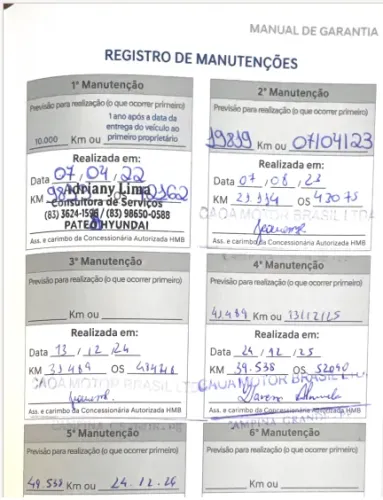 MANUAL DE GARANTIA
REGISTRO DE MANUTENÇÕES
1ª Manutenção
Previsão para realização (o que ocorrer primeiro)
1 ano após a data da
entrega do veículo ao
primeiro proprietário
10.000 Km ou
Realizada em:
Data 07, 04, 22
KM OS
Adrjany Lima
Consultora de Serviços
(83) 3624-1598 / (83) 98650-0588
PATEO HYUNDAI
Ass. e carimbo da Concessionária Autorizada HMB
2ª Manutenção
Previsão para realização (o que ocorrer primeiro)
19819 Km ou 07/04/23
Realizada em:
Data 07 / 08 / 23
KM 23.934 OS 42075
CAOA MOTOR BRASIL LTDA
Ass. e carimbo da Concessionária Autorizada HMB
3ª Manutenção
Previsão para realização (o que ocorrer primeiro)
Km ou
Realizada em:
Data 13 / 12 / 24
KM OS
CAOA MOTOR BRASIL LT
Ass. e carimbo da Concessionária Autorizada HMB
CAMPINA GRANDE
4ª Manutenção
Previsão para realização (o que ocorrer primeiro)
Km ou 13/12/25
Realizada em:
Data 24 / 12 / 25
KM 39.538 OS 52040
CAOA MOTOR BRASIL
Ass. e carimbo da Concessionária Autorizada HMB
CAMPINA GRANDE
5ª Manutenção
Previsão para realização (o que ocorrer primeiro)
49.538 Km ou 24.12.26
6ª Manutenção
Previsão para realização (o que ocorrer primeiro)
Km ou